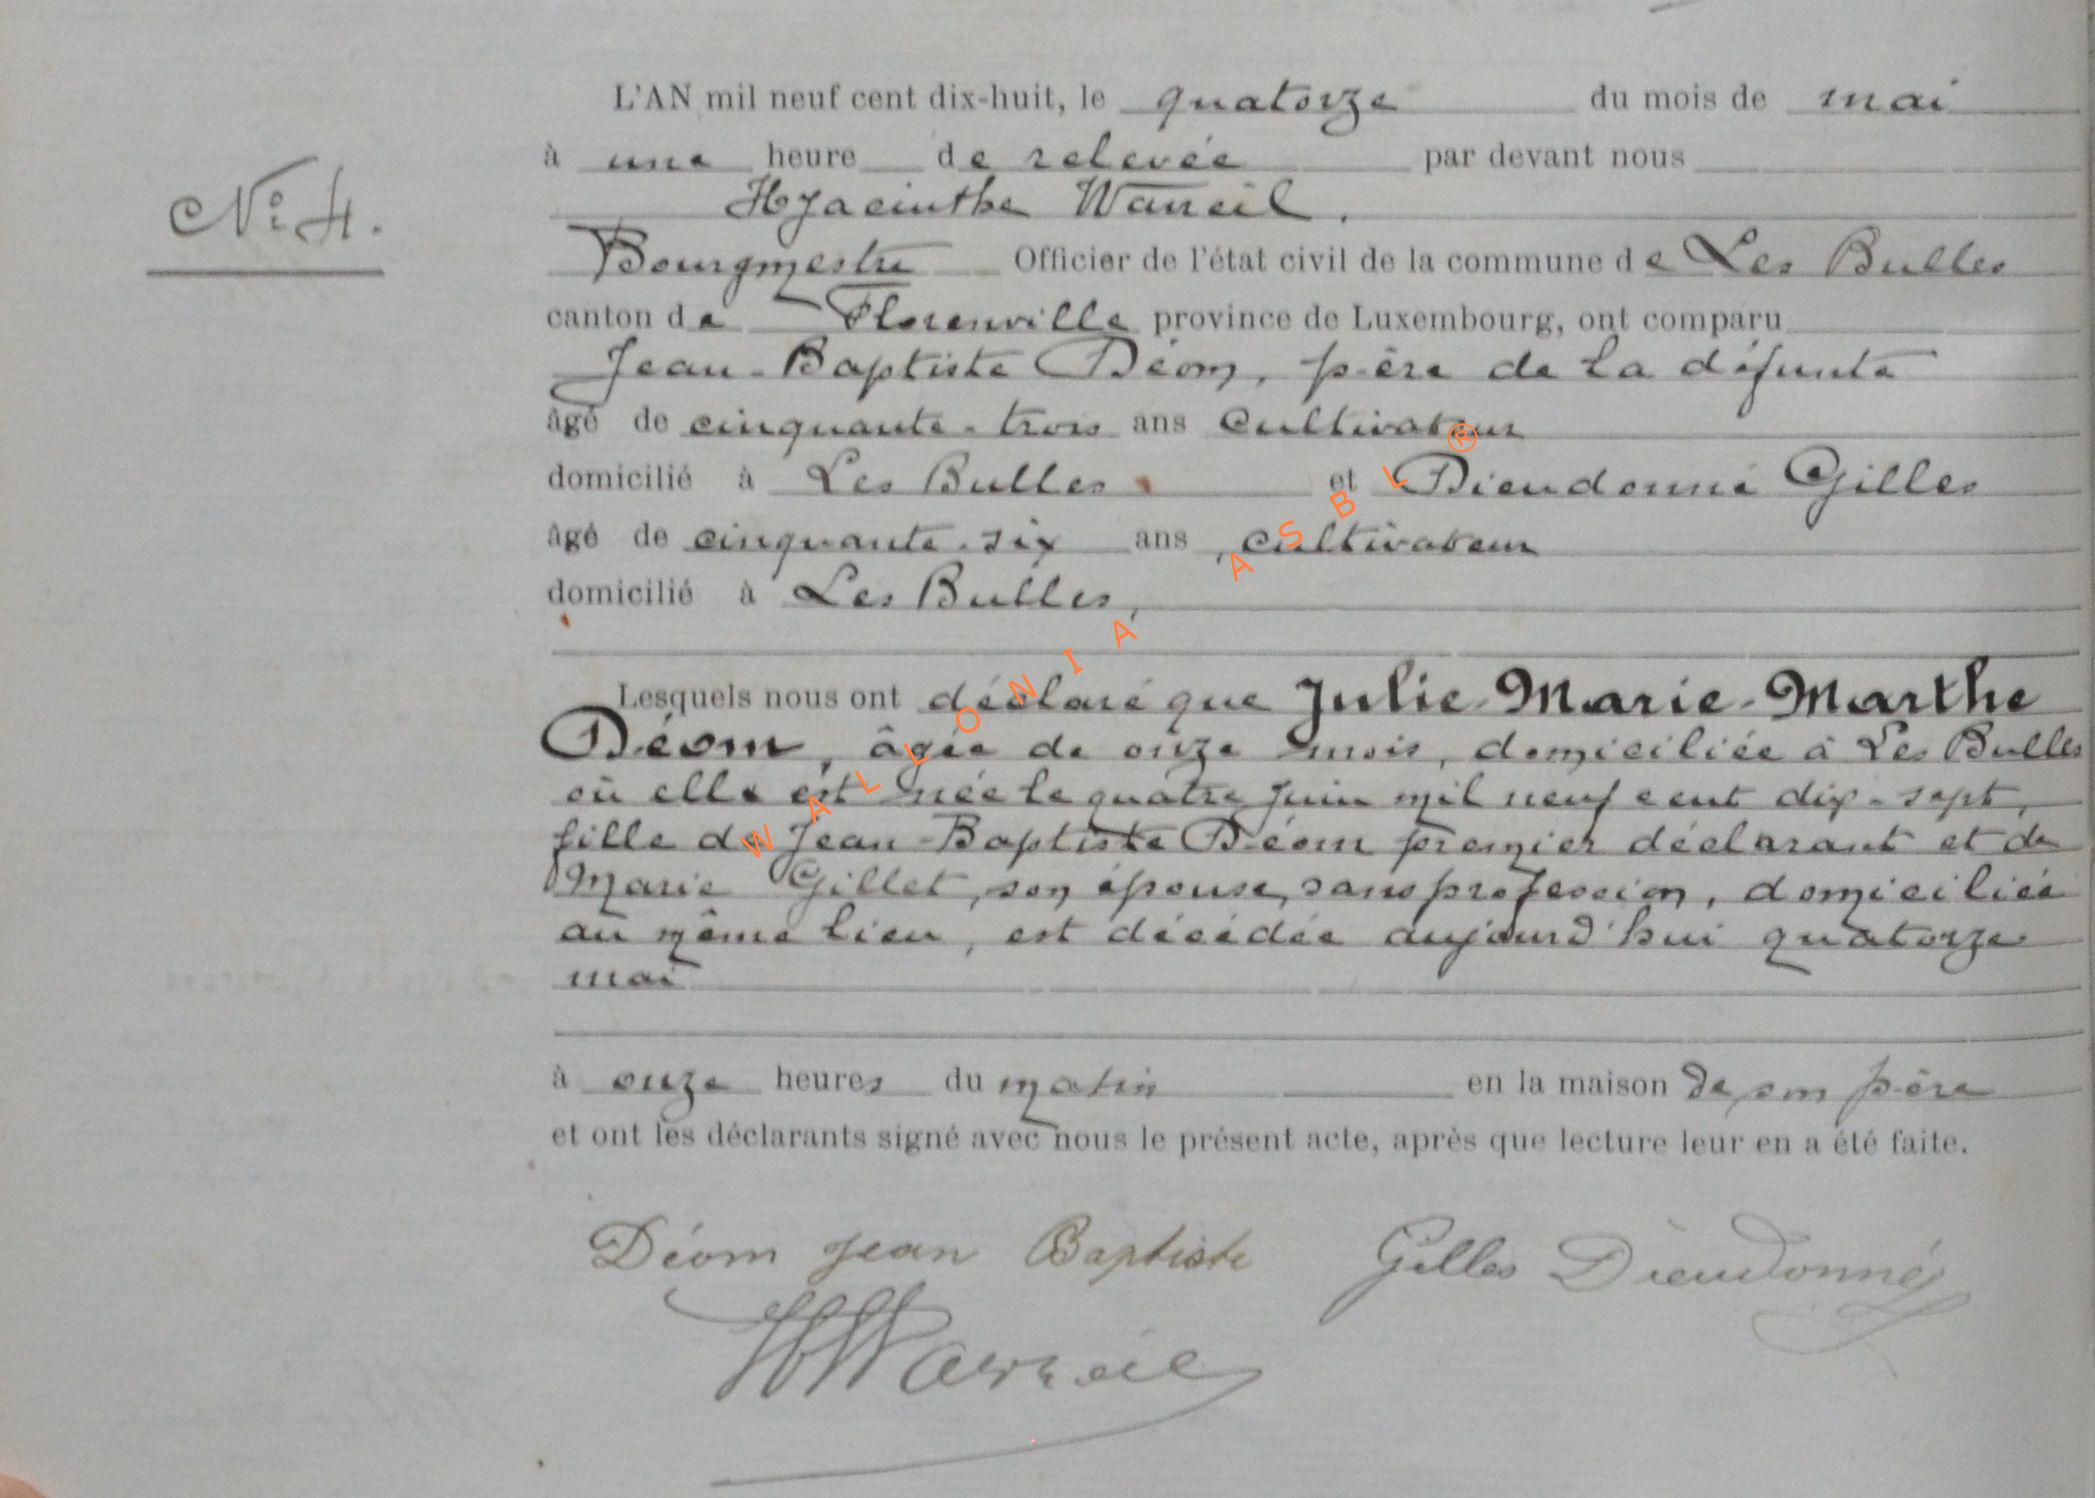 L'AN mil neuf cent dix-huit, le quatorze du mois de mai
à une heure de relevée par devant nous
N° 4.
Hyacinthe Warreil.
Bourgmestre Officier de l'état civil de la commune de Les Bulles
canton de Florenville province de Luxembourg, ont comparu
Jean-Baptiste Déom, père de la défunte
âgé de cinquante-trois ans cultivateur
domicilié à Les Bulles et Dieudonné Gilles
âgé de cinquante-six ans, cultivateur
domicilié à Les Bulles,
Lesquels nous ont déclaré que Julie-Marie-Marthe
Déom, âgée de onze mois, domiciliée à Les Bulles
où elle est née le quatre juin mil neuf cent dix-sept,
fille de Jean-Baptiste Déom premier déclarant et de
Marie Gillet, son épouse, sans profession, domiciliée
au même lieu, est décédée aujourd'hui quatorze
mai
à onze heures du matin en la maison de son père
et ont les déclarants signé avec nous le présent acte, après que lecture leur en a été faite.
Déom Jean Baptiste Gilles Dieudonné
HWarreil
WALLONIA ASBL ®